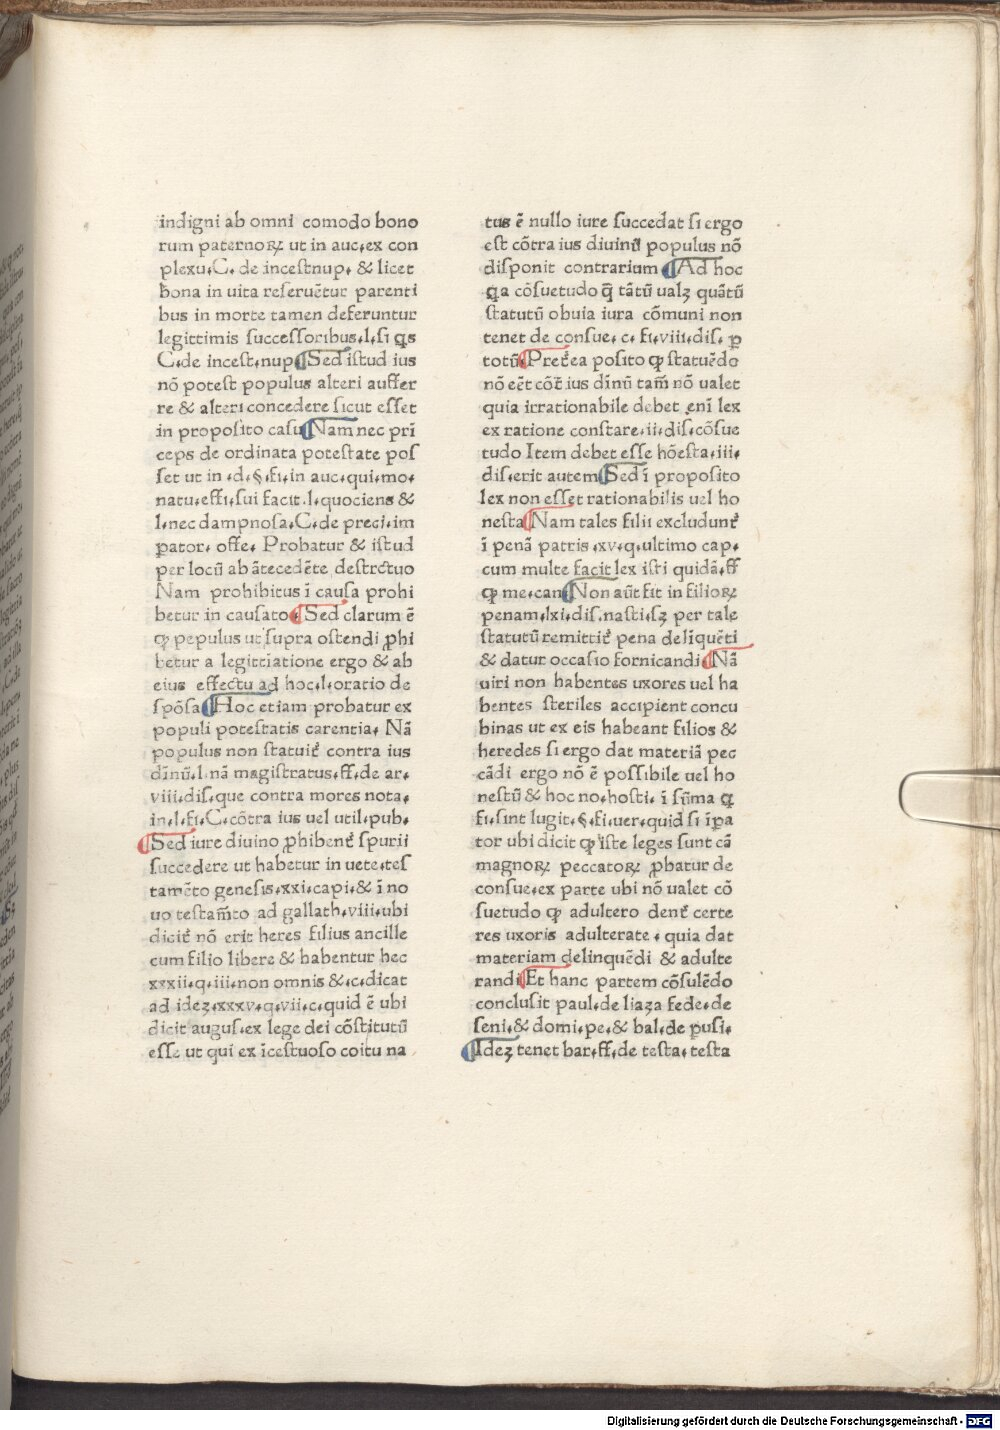 indigni ab omni comodo bono
rum paternoꝝ ut in auc.ex con
plexu.C. de incestnup. & licet
bona in uita reseruẽtur parenti
bus in morte tamen deferuntur
legittimis successoribus.l.si qs
C.de incest.nup ¶Sed istud ius
nõ potest populus alteri auffer
re & alteri concedere sicut esset
in proposito casu ¶Nam nec prĩ
ceps de ordinata potestate pos
set ut in .d.§.fi.in auc.qui.mo.
natu.effi.sui facit.l.quociens &
l.nec dampnosa.C.de preci.im
pator. offe. Probatur & istud
per locũ ab ãtecedẽte destrctuo
Nam prohibitus ĩ causa prohi
betur in causato ¶Sed clarum ẽ
ꝙ pepulus ut supra ostendi ꝓhi
betur a legittiatione ergo & ab
eius effectu ad hoc.l.oratio de
spõsa ¶Hoc etiam probatur ex
populi potestatis carentia. Nã
populus non statuit̃ contra ius
diñũ.l.nã magistratus.ff.de ar.
viii.dis.que contra mores nota.
in.l.fi.C.cõtra ius uel util.pub.
¶Sed iure diuino ꝓhibent̃ spurii
succedere ut habetur in uete.tes
tamẽto genesis.xxi.capi.& ĩ no
uo testam̃to ad gallath.viii.ubi
dicit̃ nõ erit heres filius ancille
cum filio libere & habentur hec
xxxii.q.iii.non omnis &.c.dicat
ad ideꝫ.xxxv.q.vii.c.quid ẽ ubi
dicit augus.ex lege dei cõstitutũ
esse ut qui ex ĩcestuoso coitu na
tus ẽ nullo iure succedat si ergo
est cõtra ius diuinũ populus nõ
disponit contrarium ¶Ad hoc
qa cõsuetudo q̃ tãtũ ualꝫ quãtũ
statutũ obuia iura cõmuni non
tenet de consue. c. fi.viii.dis. ꝑ
totũ ¶Pret̃ea posito ꝙ statuẽdo
nõ eẽt cõt̃ ius diñũ tam̃ nõ ualet
quia irrationabile debet enĩ lex
ex ratione constare.ii.dis.cõsue
tudo Item debet esse hõesta.iii.
dis.erit autem ¶Sed ĩ proposito
lex non esset rationabilis uel ho
nesta ¶Nam tales filii excludunt̃
ĩ penã patris .xv.q.ultimo cap.
cum multe facit lex isti quidã.ff
ꝙ me.can ¶Non aũt fit in filioꝝ
penam.lxi.dis.nasti.sꝫ per tale
statutũ remittit̃ pena delĩquẽti
& datur occasio fornicandi ¶Nã
uiri non habentes uxores uel ha
bentes steriles accipient concu
binas ut ex eis habeant filios &
heredes si ergo dat materiã pec
cãdi ergo nõ ẽ possibile uel ho
nestũ & hoc no.hosti. ĩ sũma ꝙ
fi.sint lugit.§.fi.uer.quid si ĩpa
tor ubi dicit ꝙ iste leges sunt cã
magnoꝝ peccatoꝝ ꝓbatur de
consue.ex parte ubi nõ ualet cõ
suetudo ꝙ adultero dent̃ certe
res uxoris adulterate . quia dat
materiam delinquẽdi & adulte
randi ¶Et hanc partem cõsulẽdo
conclusit paul.de liaza fede.de
seni.& domi.pe.& bal.de pusi.
¶Ideꝫ tenet bar.ff.de testa.testa
Digitalisierung gefördert durch die Deutsche Forschungsgemeinschaft - DFG